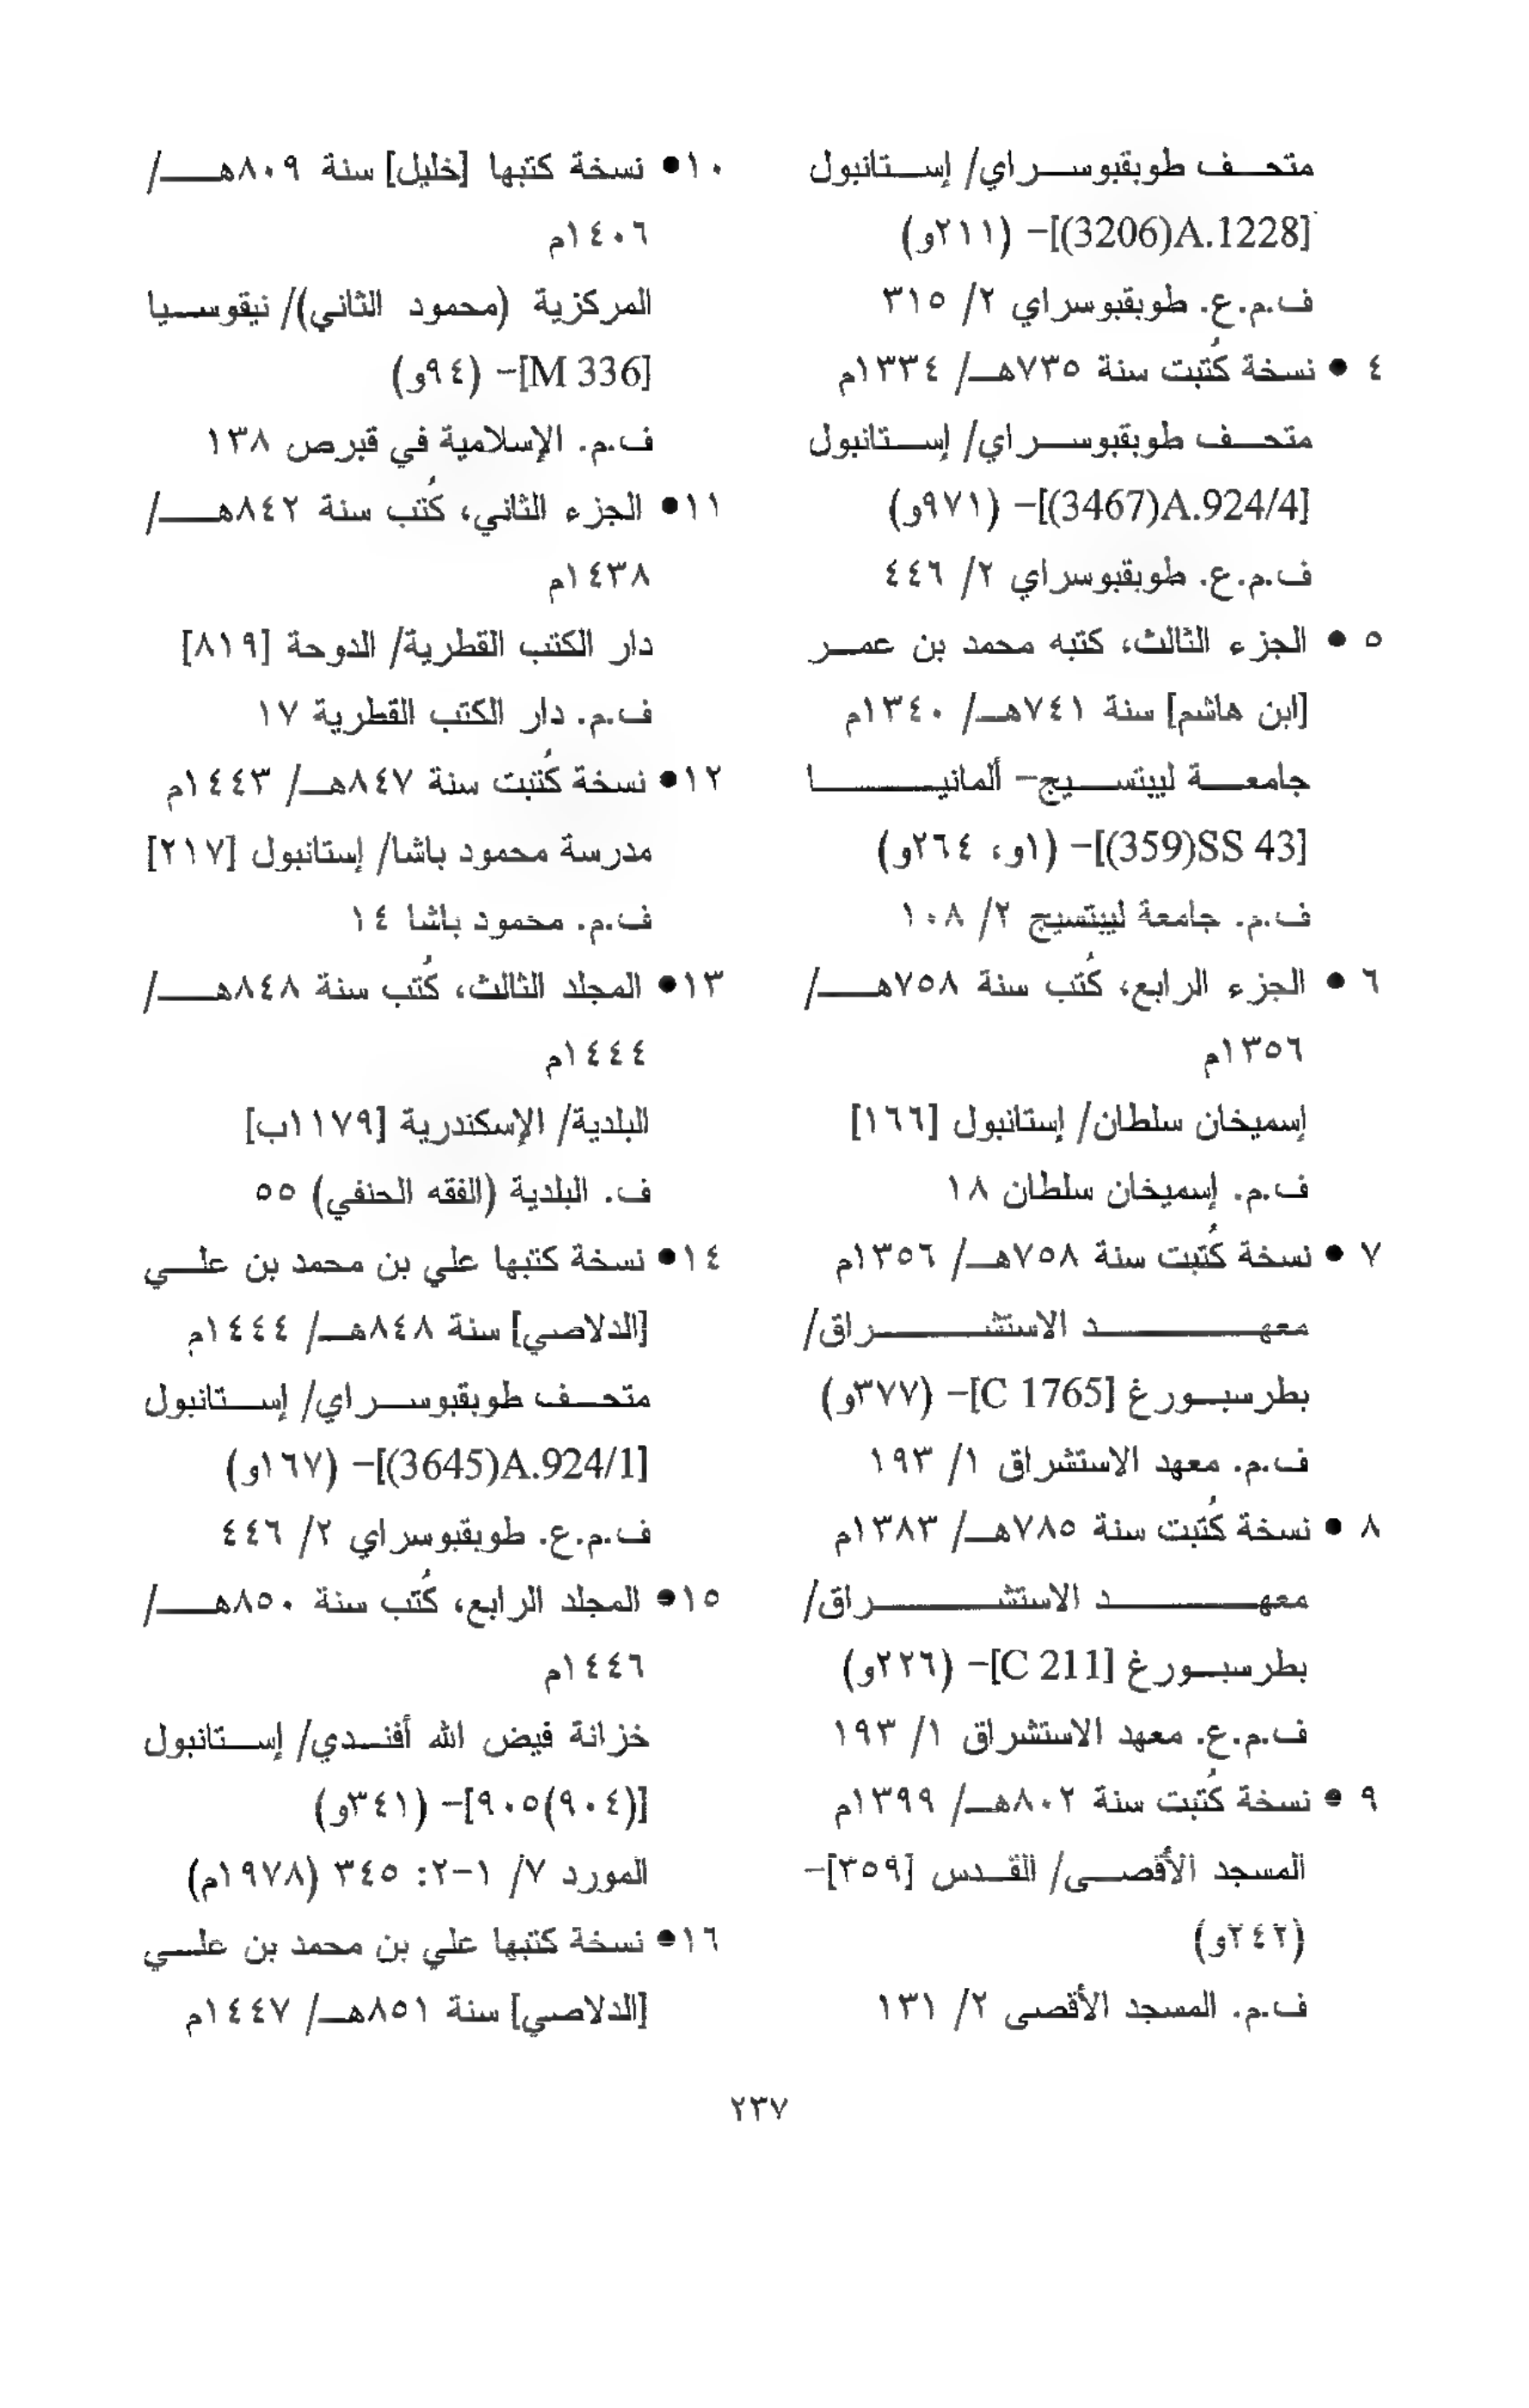 متحف طوبقبوسراي/ إستانبول
[3206)A.1228)]- (٢١١و)
ف.م.ع. طوبقبوسراي ٢/ ٣١٥
٤ • نسخة كُتبت سنة ٧٣٥هـ/ ١٣٣٤م
متحف طوبقبوسراي/ إستانبول
[3467)A.924/4)]- (٩٧١و)
ف.م.ع. طوبقبوسراي ٢/ ٤٤٦
٥ • الجزء الثالث، كتبه محمد بن عمر
[ابن هاشم] سنة ٧٤١هـ/ ١٣٤٠م
جامعة ليبتسيج- ألمانيا
[359)SS 43)]- (١و، ٢٦٤و)
ف.م. جامعة ليبتسيج ٢/ ١٠٨
٦ • الجزء الرابع، كُتب سنة ٧٥٨هـ/
١٣٥٦م
إسميخان سلطان/ إستانبول [١٦٦]
ف.م. إسميخان سلطان ١٨
٧ • نسخة كُتبت سنة ٧٥٨هـ/ ١٣٥٦م
معهد الاستشراق/
بطرسبورغ [C 1765]- (٣٧٧و)
ف.م. معهد الاستشراق ١/ ١٩٣
٨ • نسخة كُتبت سنة ٧٨٥هـ/ ١٣٨٣م
معهد الاستشراق/
بطرسبورغ [C 211]- (٢٢٦و)
ف.م.ع. معهد الاستشراق ١/ ١٩٣
٩ • نسخة كُتبت سنة ٨٠٢هـ/ ١٣٩٩م
المسجد الأقصى/ القدس [٣٥٩]-
(٢٤٢و)
ف.م. المسجد الأقصى ٢/ ١٣١
١٠• نسخة كتبها [خليل] سنة ٨٠٩هـ/
١٤٠٦م
المركزية (محمود الثاني)/ نيقوسيا
[M 336]- (٩٤و)
ف.م. الإسلامية في قبرص ١٣٨
١١• الجزء الثاني، كُتب سنة ٨٤٢هـ/
١٤٣٨م
دار الكتب القطرية/ الدوحة [٨١٩]
ف.م. دار الكتب القطرية ١٧
١٢• نسخة كُتبت سنة ٨٤٧هـ/ ١٤٤٣م
مدرسة محمود باشا/ إستانبول [٢١٧]
ف.م. محمود باشا ١٤
١٣• المجلد الثالث، كُتب سنة ٨٤٨هـ/
١٤٤٤م
البلدية/ الإسكندرية [١١٧٩ب]
ف. البلدية (الفقه الحنفي) ٥٥
١٤• نسخة كتبها علي بن محمد بن علي
[الدلاصي] سنة ٨٤٨هـ/ ١٤٤٤م
متحف طوبقبوسراي/ إستانبول
[3645)A.924/1)]- (١٦٧و)
ف.م.ع. طوبقبوسراي ٢/ ٤٤٦
١٥• المجلد الرابع، كُتب سنة ٨٥٠هـ/
١٤٤٦م
خزانة فيض الله أفندي/ إستانبول
[(٩٠٤)٩٠٥]- (٣٤١و)
المورد ٧/ ١-٢: ٣٤٥ (١٩٧٨م)
١٦• نسخة كتبها علي بن محمد بن علي
[الدلاصي] سنة ٨٥١هـ/ ١٤٤٧م
٢٣٧